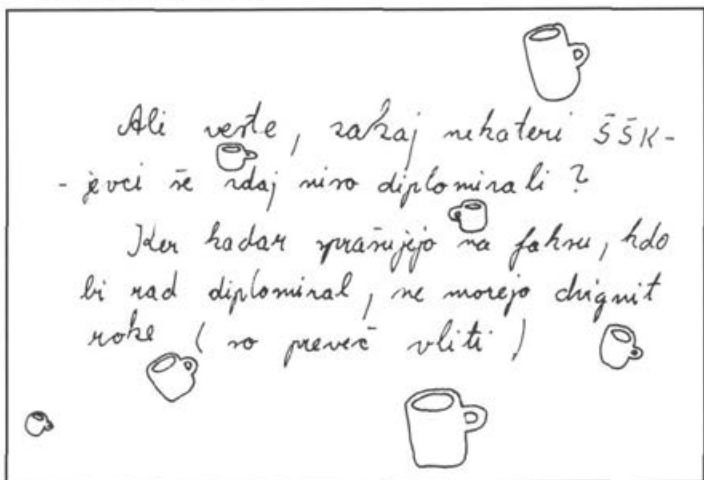 Ali veste, zakaj nekateri ŠŠK-
- jevci še zdaj niso diplomirali?
Ker kadar sprašujejo na faksu, kdo
bi rad diplomiral, ne morejo dvignit
roke (so preveč vliti)